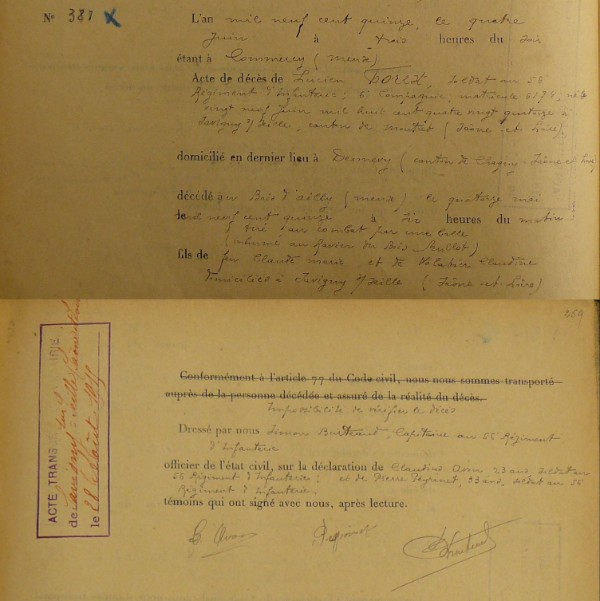 N° 381 X
L'an mil neuf cent quinze, le quatre
Juin à trois heures du soir
étant à Commercy (Meuse)
Acte de décès de Lucien soldat au 56
Régiment d'Infanterie, 6 Compagnie, matricule 6178, né
vingt neuf Juin mil huit cent quatre vingt quatorze à
Savigny s/ Seille, canton de (Saône et Loire),
domicilié en dernier lieu à Demigny (canton de Chagny Saône et Loire)
décédé au Bois d'Ailly (Meuse) le quatorze mai
mil neuf cent quinze à six heures du matin
tué au combat par une balle
(inhumé au du Bois)
fils de feu Claude Marie et de Claudine
domiciliée à Savigny s/ Seille (Saône et Loire)
259
Conformément à l'article 77 du Code civil, nous nous sommes transporté
auprès de la personne décédée et assuré de la réalité du décès.
Impossibilité de vérifier le décès
Dressé par nous Simon Capitaine au 56 Régiment
d'Infanterie
officier de l'état civil, sur la déclaration de Claudius 23 ans, soldat au
56 Régiment d'Infanterie; et de Pierre 23 ans, soldat au 56
Régiment d'Infanterie.
témoins qui ont signé avec nous, après lecture.
ACTE TRANS
de
le 28 Août 1915